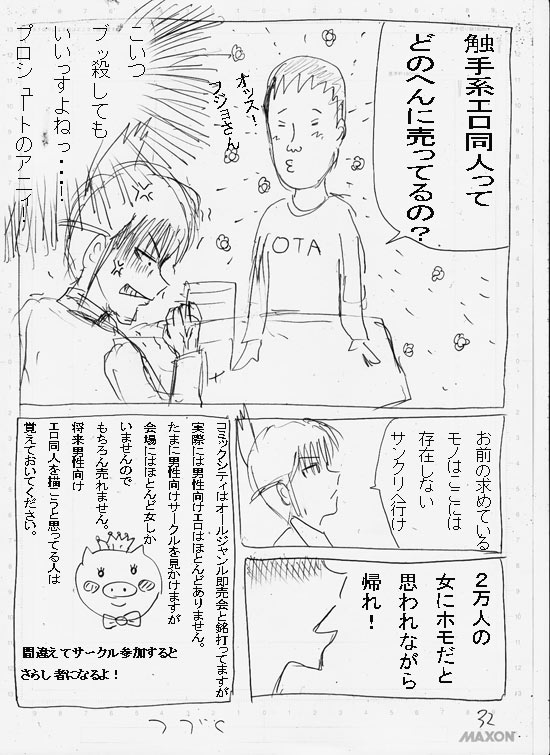 触手系エロ同人って
どのへんに売ってるの？
オッス！
フジョさん
OTA
こいつ
ブッ殺しても
いいっすよねっ・・・！
プロシュートのアニィ！
お前の求めている
モノはここには
存在しない
サンクリへ行け
２万人の
女にホモだと
思われながら
帰れ！
コミックシティはオールジャンル即売会と銘打ってますが
実際には男性向けエロはほとんどありません。
たまに男性向けサークルを見かけますが
会場にはほとんど女しか
いませんので
もちろん売れません。
将来男性向け
エロ同人を描こうと思ってる人は
覚えておいてください。
間違えてサークル参加すると
さらし者になるよ！
つづく
32
MAXON